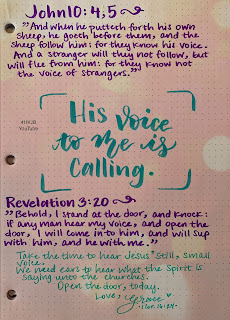 John 10:4,5
"And when he putteth forth his own
sheep, he goeth before them, and the
sheep follow him: for they know his voice.
And a stranger will they not follow, but
will flee from him: for they know not
the voice of strangers."
YouTube
His voice
to me is
calling.
Revelation 3:20
"Behold, I stand at the door, and knock:
if any man hear my voice, and open the
door, I will come in to him, and will sup
with him, and he with me."
Take the time to hear Jesus' still, small
voice.
We need ears to hear what the Spirit is
saying unto the churches.
Open the door, today.
Love, Grace